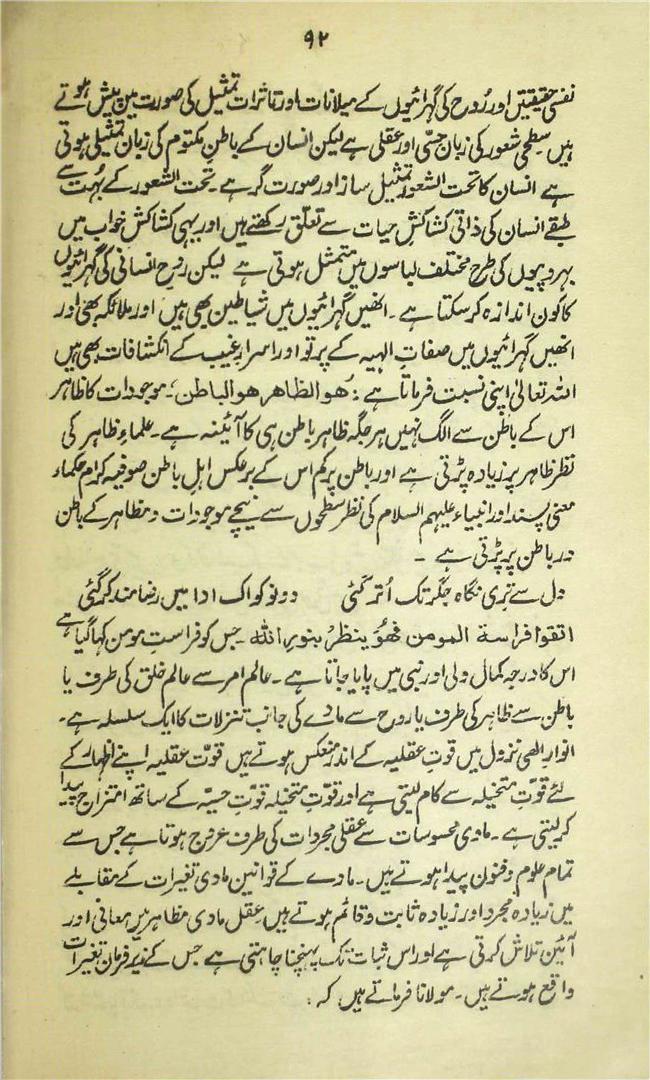 ۹۲
نفسی حقیقتیں اور رُوح کی گہرائیوں کے میلانات اور تاثرات تمثیل کی صورت میں پیش ہوتے
ہیں۔ سطحی شعور کی زبان حسّی اور عقلی ہے لیکن انسان کے باطنِ مکتوم کی زبان تمثیلی ہوتی
ہے انسان کا تحت الشعور تمثیل ساز اور صورت گر ہے۔ تحت الشعور کے بہُت سے
طبقے انسان کی ذاتی کشاکشِ حیات سے تعلّق رکھتے ہیں اور یہی کشاکش خواب میں
بہروپیوں کی طرح مختلف لباسوں میں متمثل ہوتی ہے لیکن روح انسانی کی گہرائیوں
کا کون اندازہ کر سکتا ہے۔ انھیں گہرائیوں میں شیاطین بھی ہیں اور ملائکہ بھی اور
انھیں گہرائیوں میں صفاتِ الٰہیہ کے پرتو اور اسرارِ غیب کے انکشافات بھی ہیں
اللہ تعالیٰ اپنی نسبت فرماتا ہے : ھوالظاھر ھوالباطن‘۔ موجودات کا ظاہر
اس کے باطن سے الگ نہیں ہر جگہ ظاہر باطن ہی کا آئینہ ہے۔ علماءِ ظاہر کی
نظر ظاہر پر زیادہ پڑتی ہے اور باطن پر کم اس کے برعکس اہلِ باطن صوفیہ کرام حکماء
معنی پسند اور انبیاء علیہم السلام کی نظر سطحوں سے نیچے موجودات و مظاہر کے باطن
در باطن پر پڑتی ہے ۔
دل سے تری نگاہ جگر تک اُتر گئی دونو کو اک ادا میں رضامند کر گئی
اتقوا فراسة المومن فھو ینظر بنور اللہ ۔ جس کو فراستِ مومن کہا گیا ہے
اس کا درجہ کمال ولی اور نبی میں پایا جاتا ہے۔ عالم امر سے عالم خلق کی طرف یا
باطن سے ظاہر کی طرف یا روح سے مادے کی جانب تنزلات کا ایک سلسلہ ہے۔
انوار الٰھی نزول میں قوتِ عقلیہ کے اندر منعکس ہوتے ہیں قوّت عقلیہ اپنے اظہار کے
لئے قوّتِ متخیلہ سے کام لیتی ہے اور قوّتِ متخیلہ قوّتِ حسیّہ کے ساتھ امتزاج پیدا
کر لیتی ہے۔ مادی محسوسات سے عقلی مجردات کی طرف عروج ہوتا ہے جس سے
تمام علوم و فنون پیدا ہوتے ہیں۔ مادے کے قوانین مادی تغیرات کے مقابلے
میں زیادہ مجرد اور زیادہ ثابت و قائم ہوتے ہیں عقل مادی مظاہر میں معانی اور
آئین تلاش کرتی ہے اور اس ثبات تک پہنچنا چاہتی ہے جس کے زیرِ فرمان تغیرات
واقع ہوتے ہیں۔ مولانا فرماتے ہیں کہ :